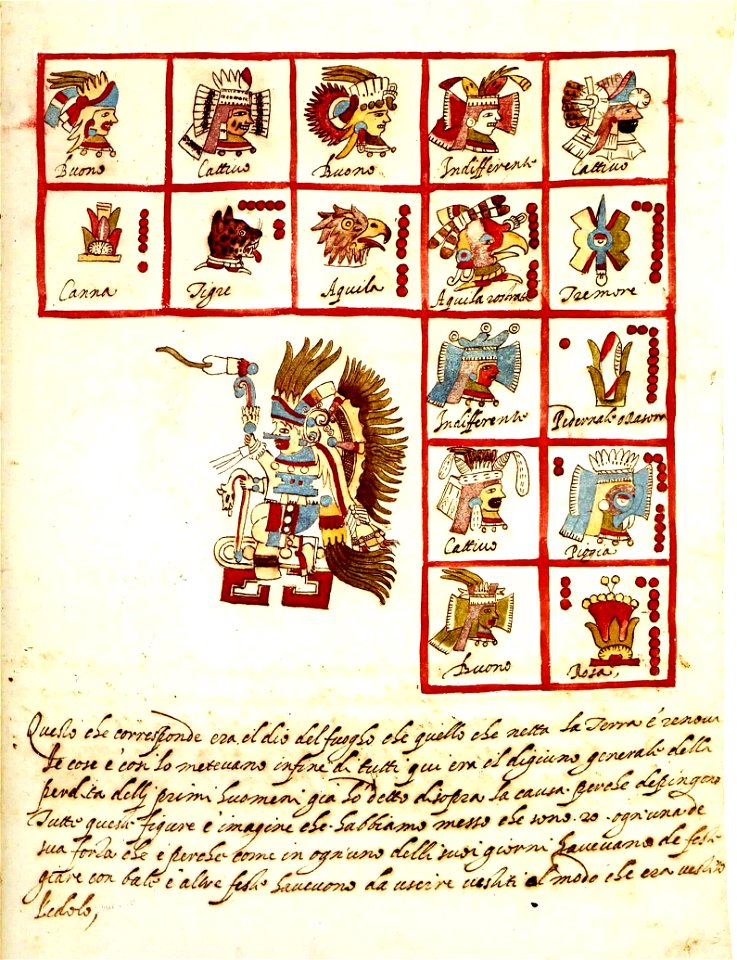 Buono Cattivo Buono Indifferente Cattivo
Canna Tigre Aquila Aquila Tremore
Indifferente Pedernale o Rason
Cattivo Piogia
Buono Rosa,
Questo che corresponde era el dio del fuogho che quello che netta la Terra è renova
le cose è con lo metevano infine di tutti qui era il digiuno generale della
perdita delli primi huomeni gia ho detto di sopra la causa perche depingono
Tutte queste figure è imagine che habbiamo messo che sono 20 ogn'una de
sua forza che e perche come in ogn'uno delli suoi giorni havevano de feste
giare con bale è altre feste havevono da uscire vestiti al modo che era vestito
l'idolo,